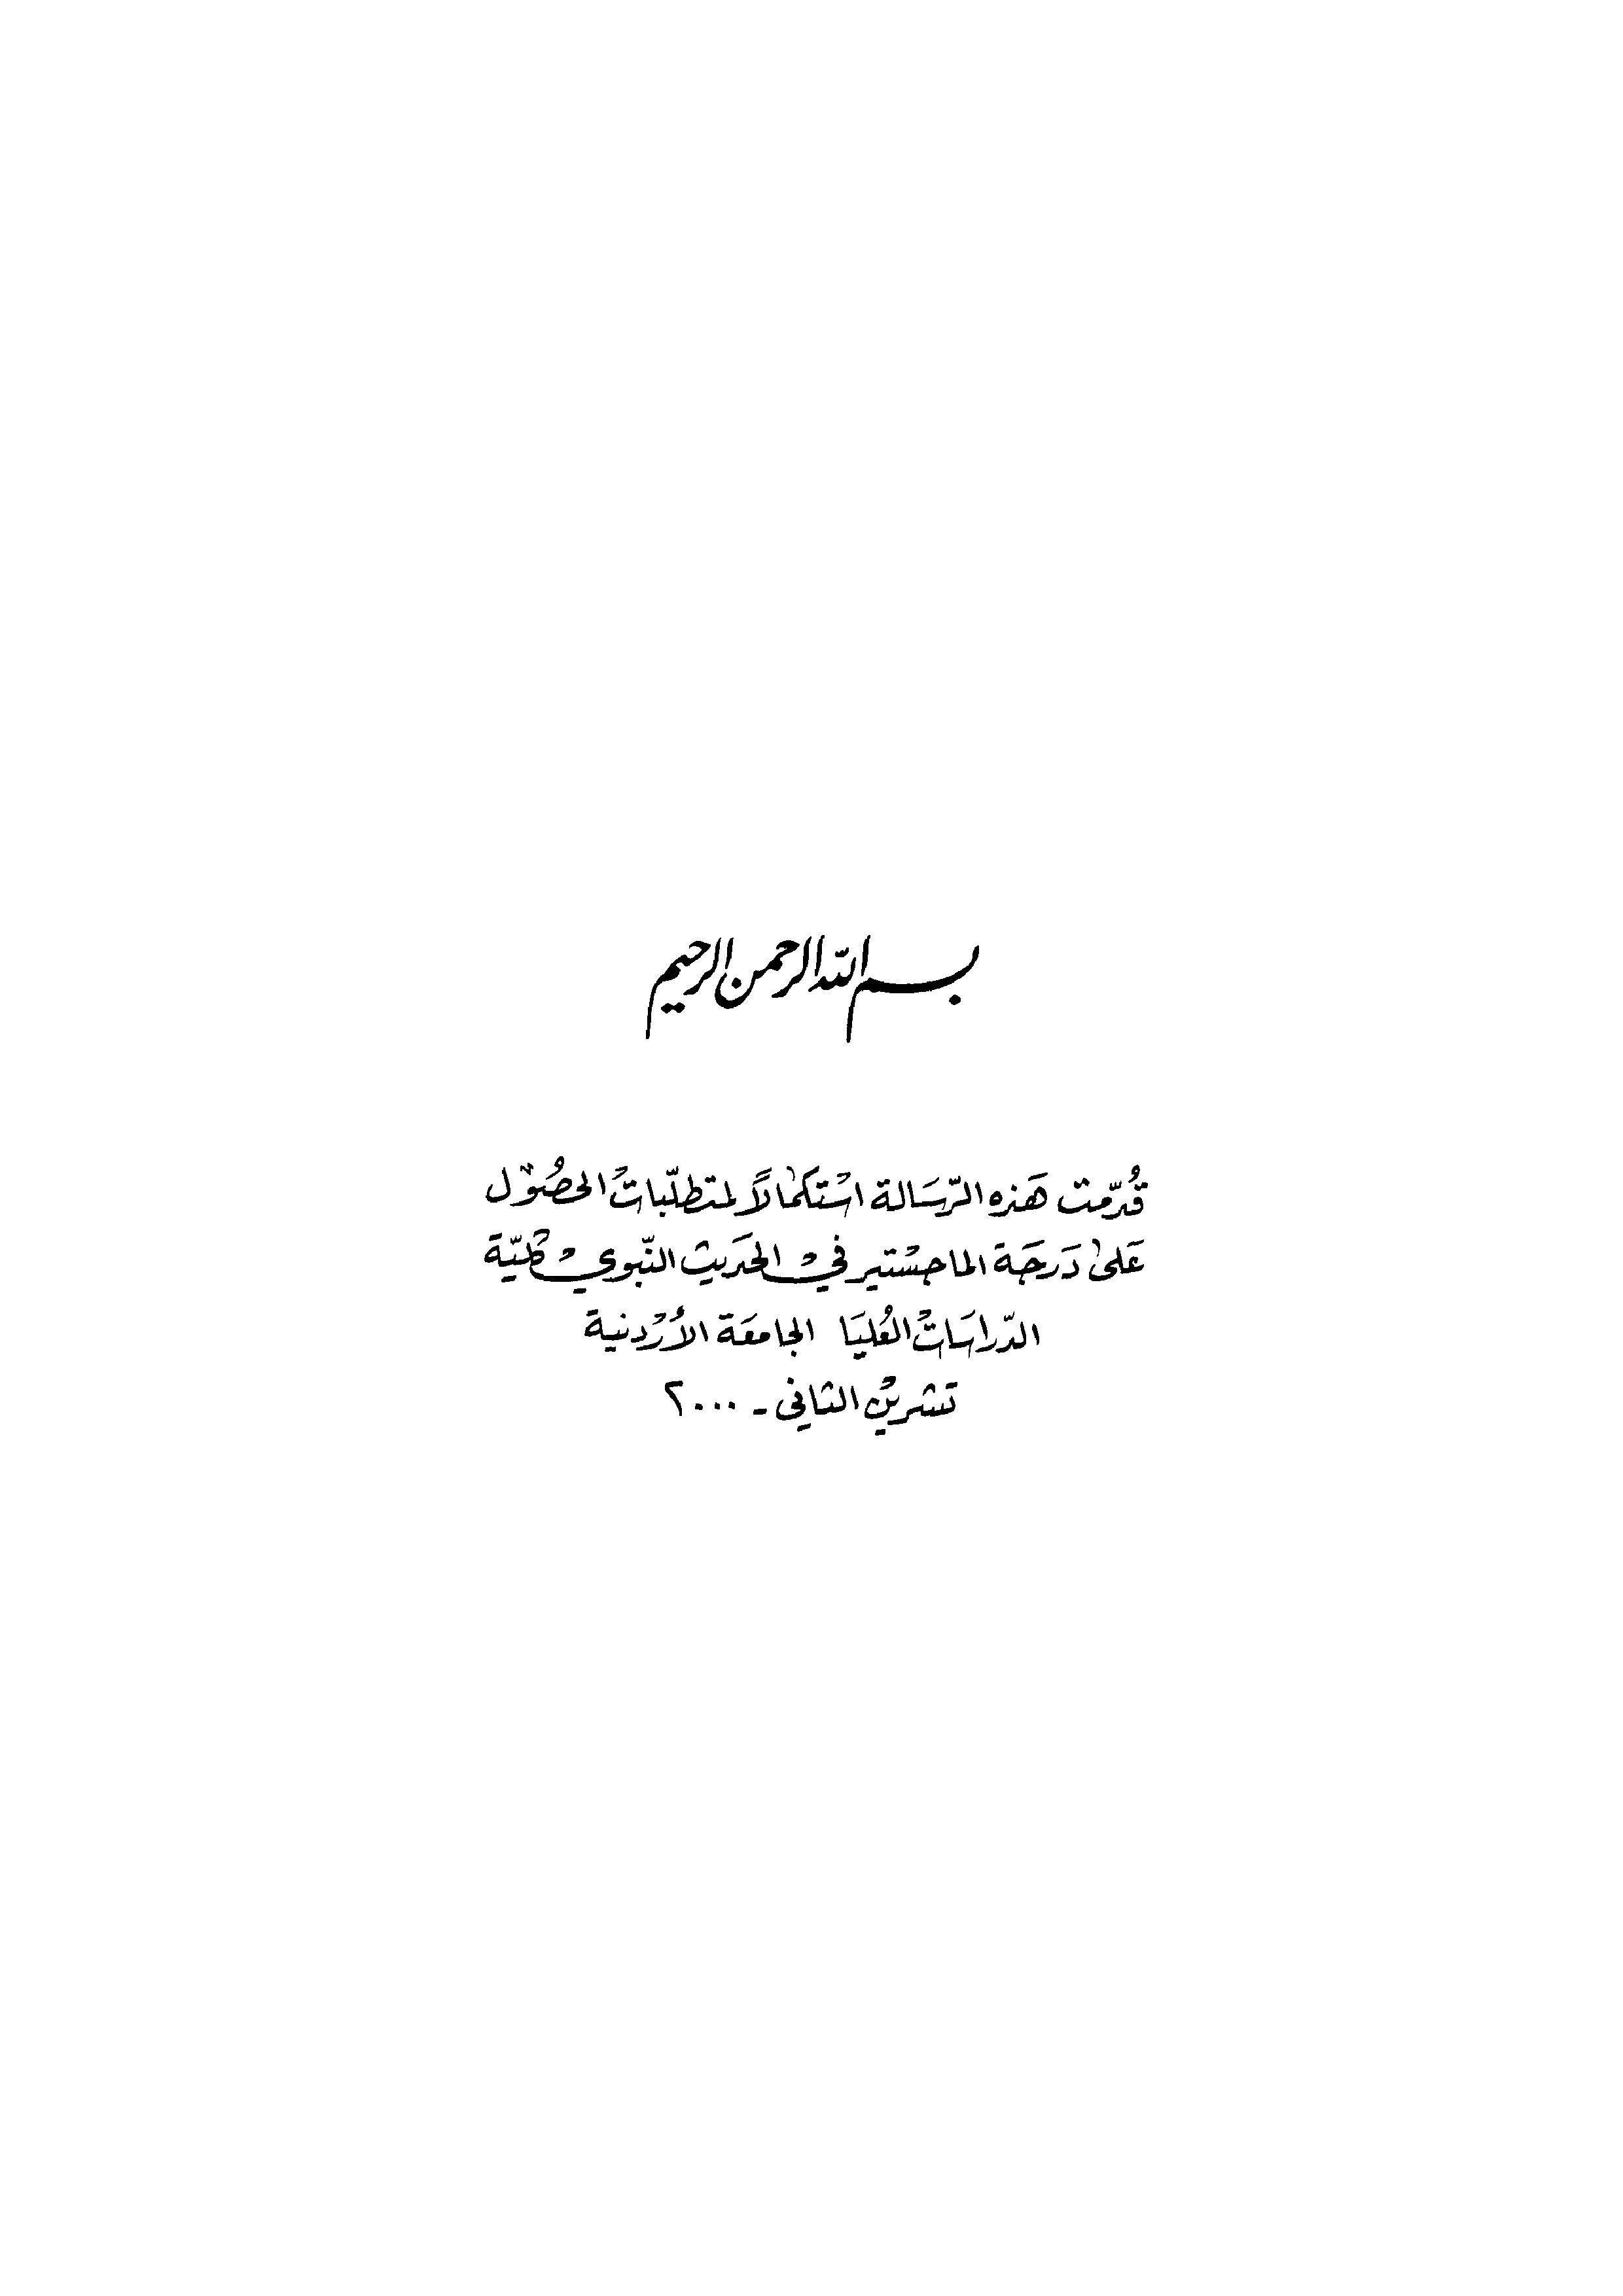 بسم الله الرحمن الرحيم
قُدّمت هَذه الرّسَالة اسْتكمالاً لمتطلّبات الحصُول
عَلى دَرجَة الماجسْتير في الحَديث النّبوي كليّة
الدّراسَات العُليَا الجامعَة الأرْدنية
تشرين الثاني - ٢٠٠٠